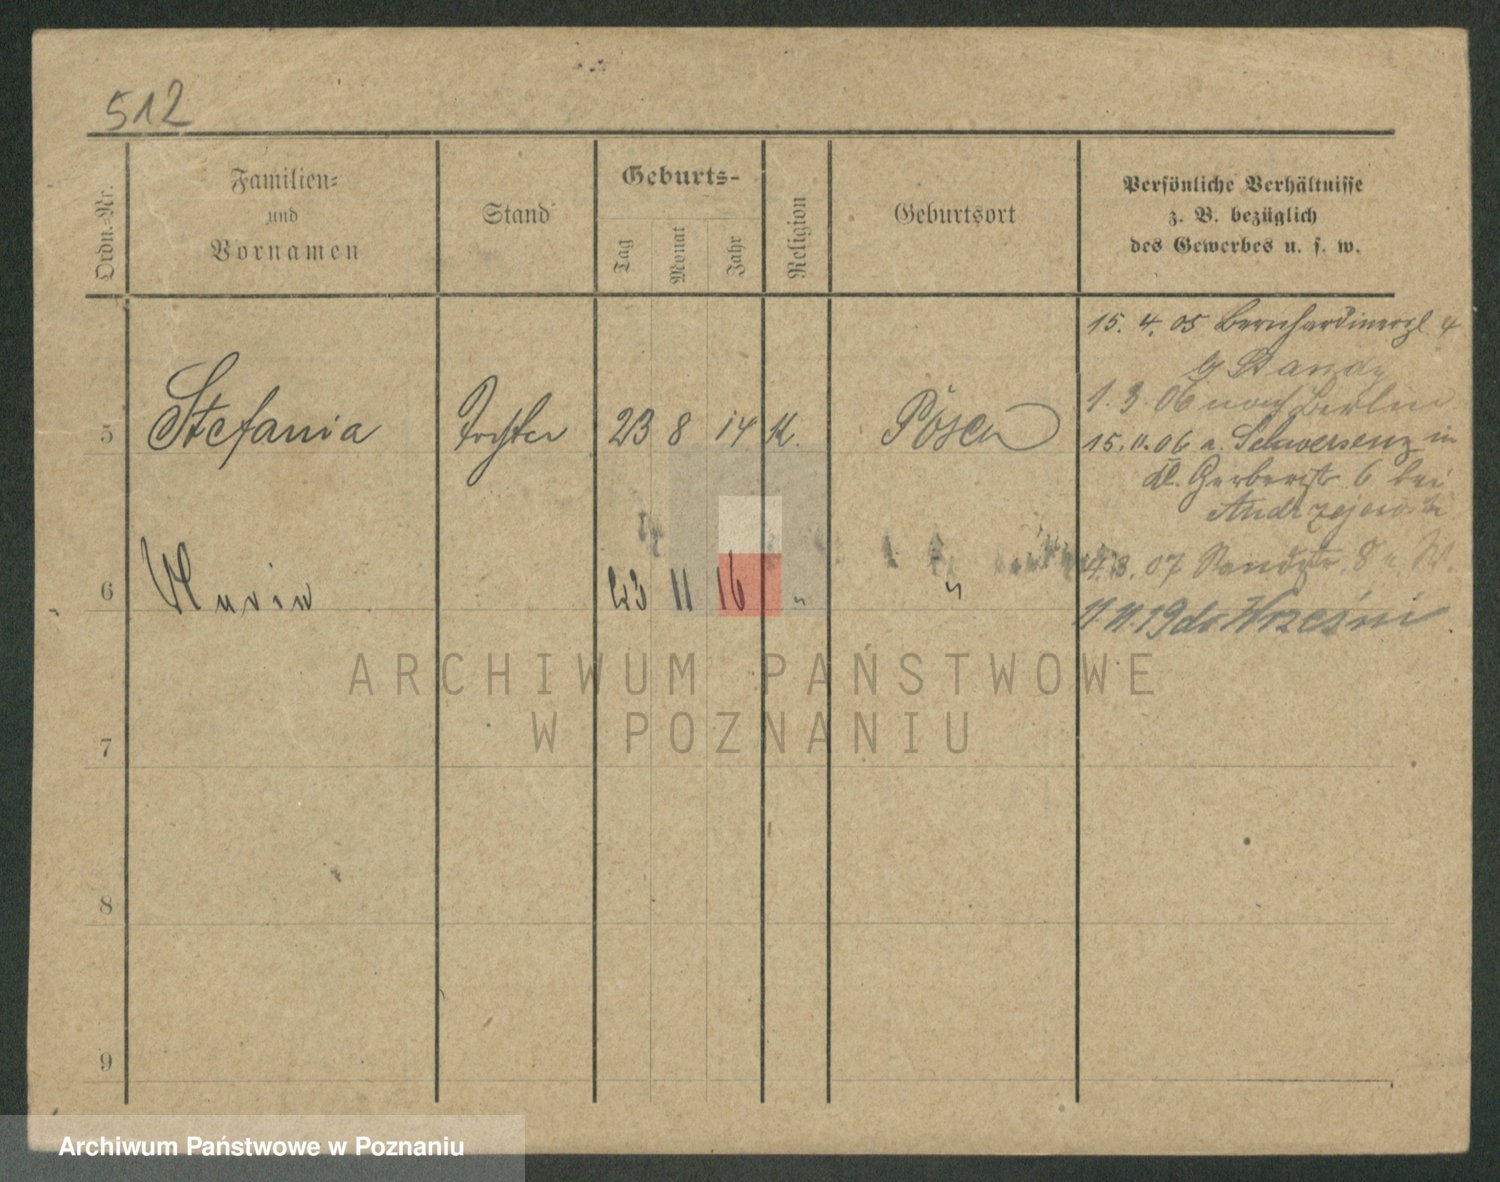 512
Ordn.-Nr.
Familien-
und
Vornamen
Stand
Geburts-
Tag
Monat
Jahr
Religion
Geburtsort
Persönliche Verhältnisse
z. B. bezüglich
des Gewerbes u. s. w.
15. 4. 05 Bernhardinerpl 4
b Standy
1. 3. 06 nach Berlin
5 Stefania Tochter 23 8 14 K. Posen
15. 11. 06 a. Schwersenz in
Kl. Gerberstr 6 bei
6 23 11 16 " "
4. 3. 07 8
11. 11. 19 do Wrześni
7
8
9
ARCHIWUM PAŃSTWOWE
W POZNANIU
Archiwum Państwowe w Poznaniu